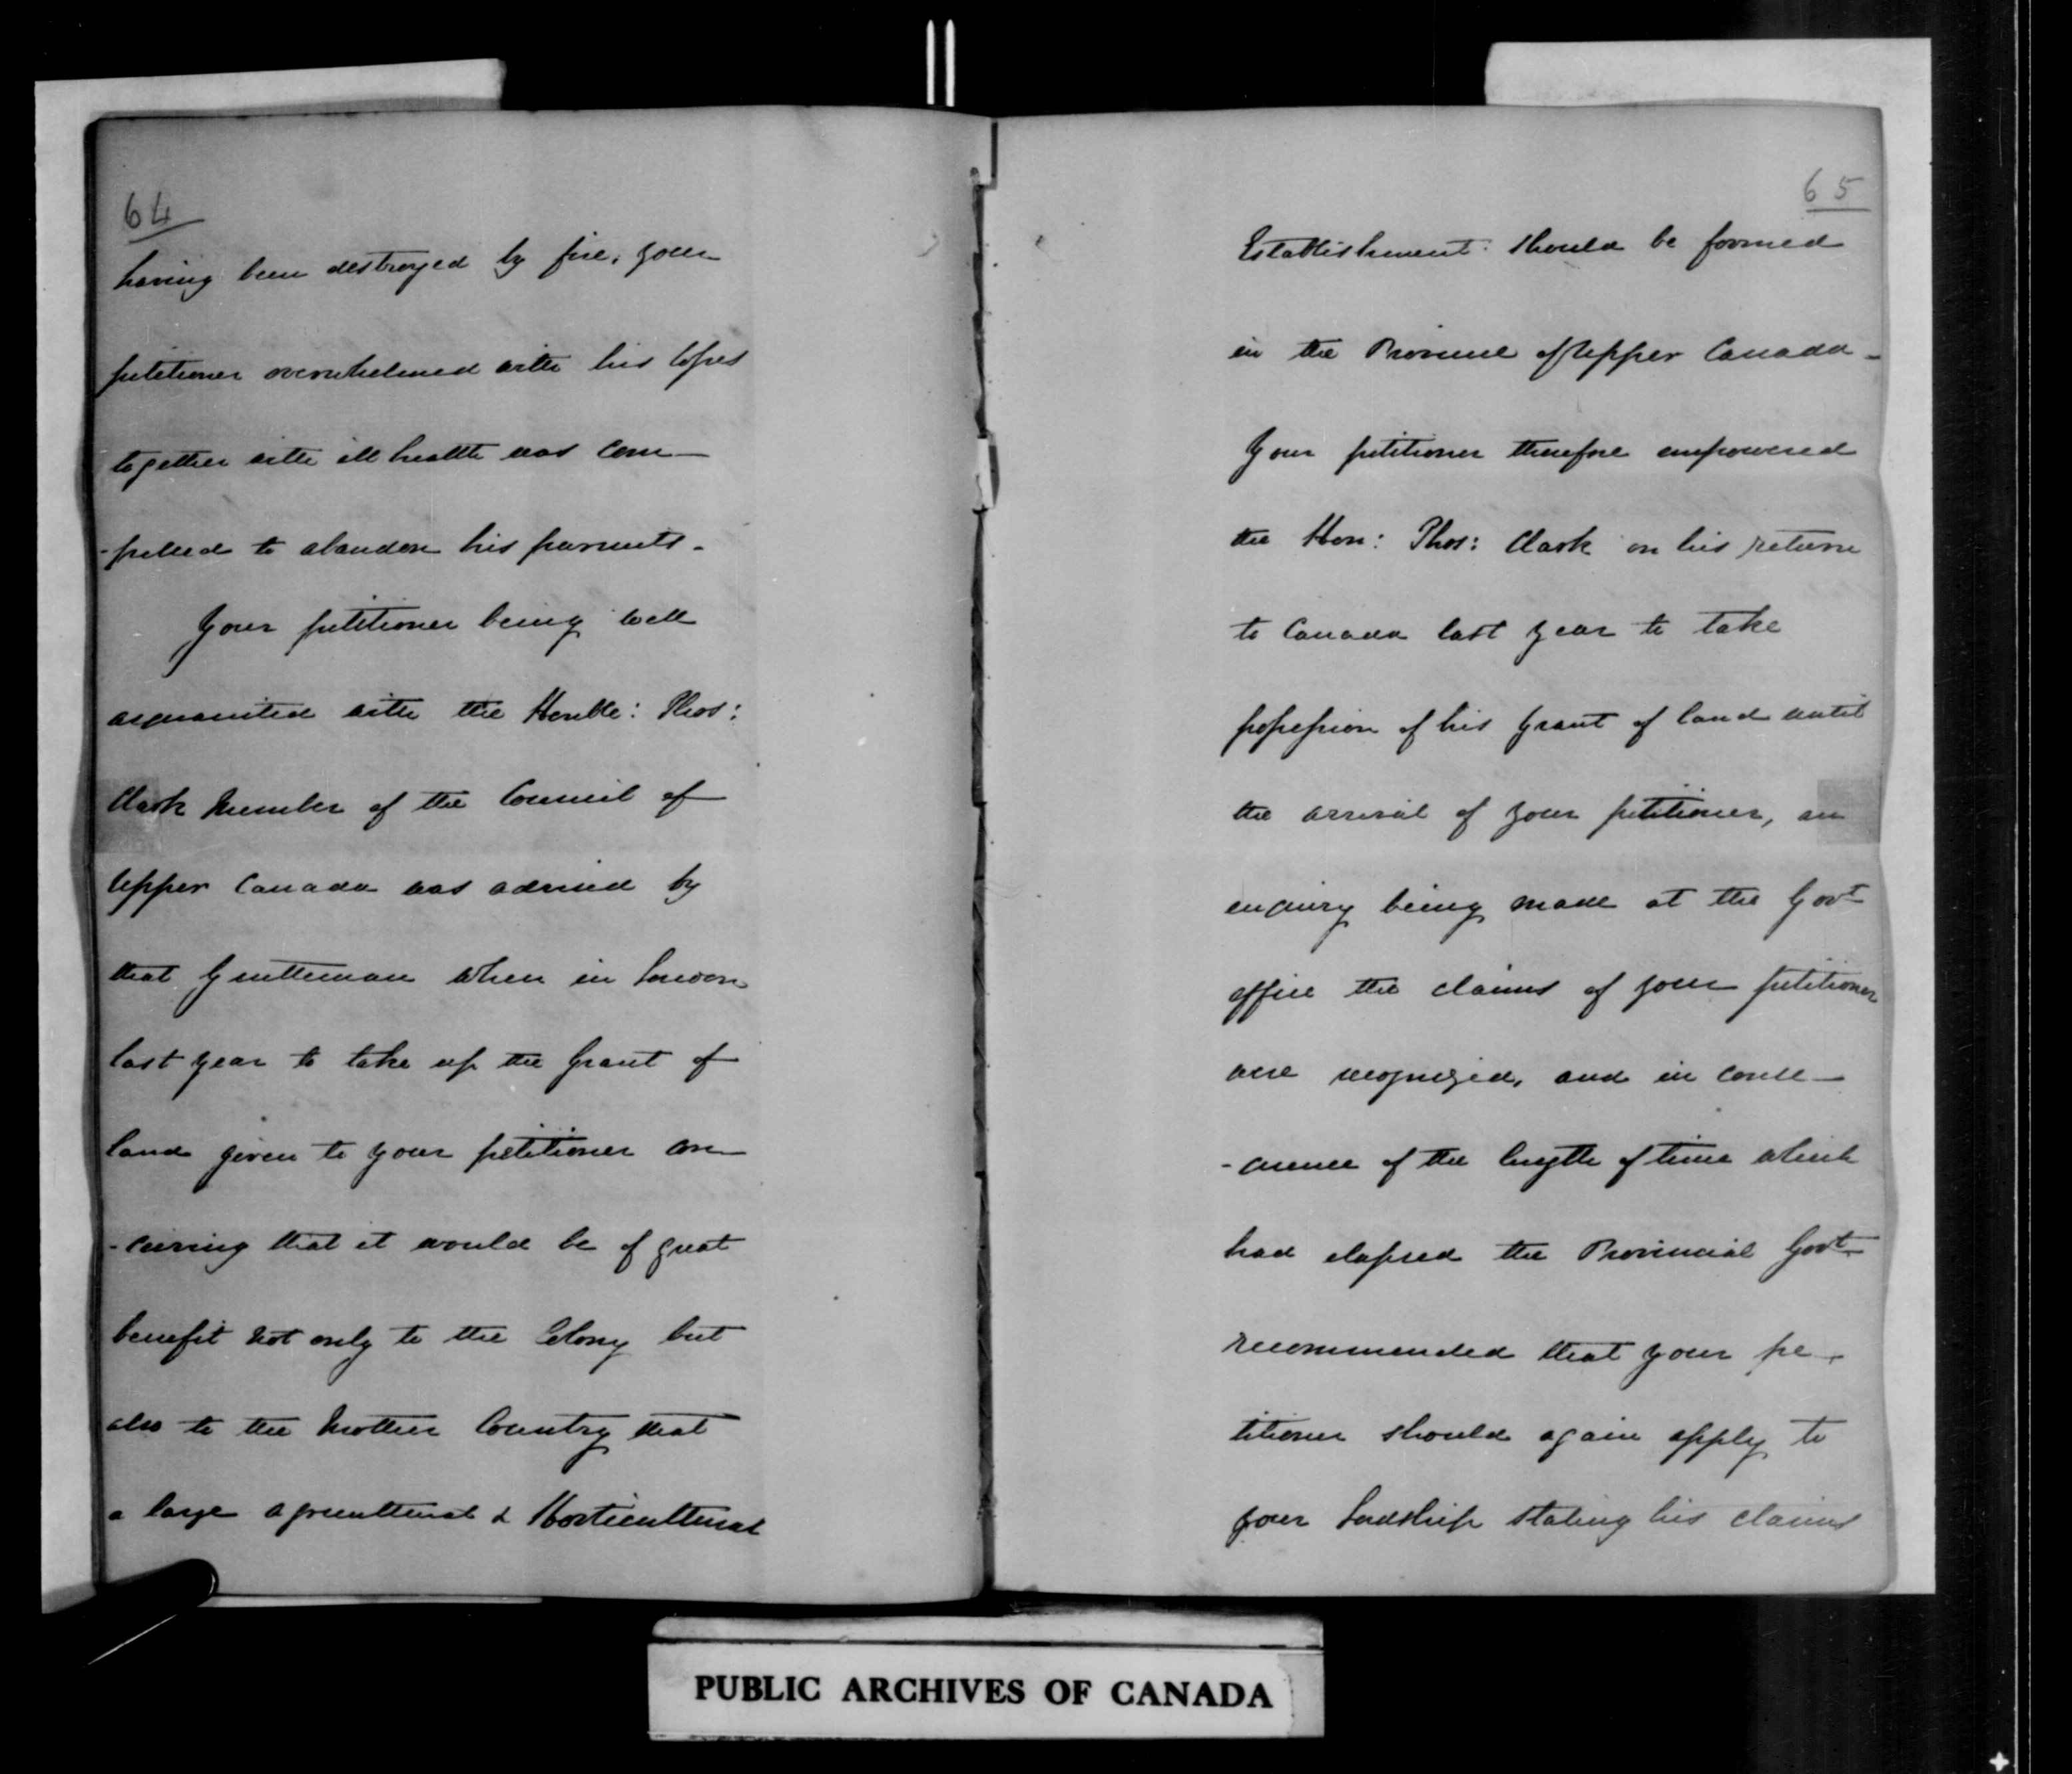 64
having been destroyed by fire, your
petitioner overwhelmed with his losses
together with ill health was com-
-pelled to abandon his pursuits.
Your petitioner being well
acquainted with the Honble: Thos:
Clark Member of the Council of
Upper Canada was advised by
that Gentleman when in London
last year to take up the Grant of
land given to your petitioner con-
-ceiving that it would be of great
benefit not only to the Colony but
also to the Mother Country that
a large Agricultural & Horticultural
65
Establishment should be formed
in the Province of Upper Canada -
Your petitioner therefore empowered
the Hon: Thos: Clark on his return
to Canada last year to take
possession of his Grant of land until
the arrival of your petitioner, an
enquiry being made at the Govt
office the claims of your petitioner
were recognized, and in conse-
-quence of the length of time which
had elapsed the Provincial Govt
recommended that your pe-
titioner should again apply to
your Lordship stating his claims
PUBLIC ARCHIVES OF CANADA